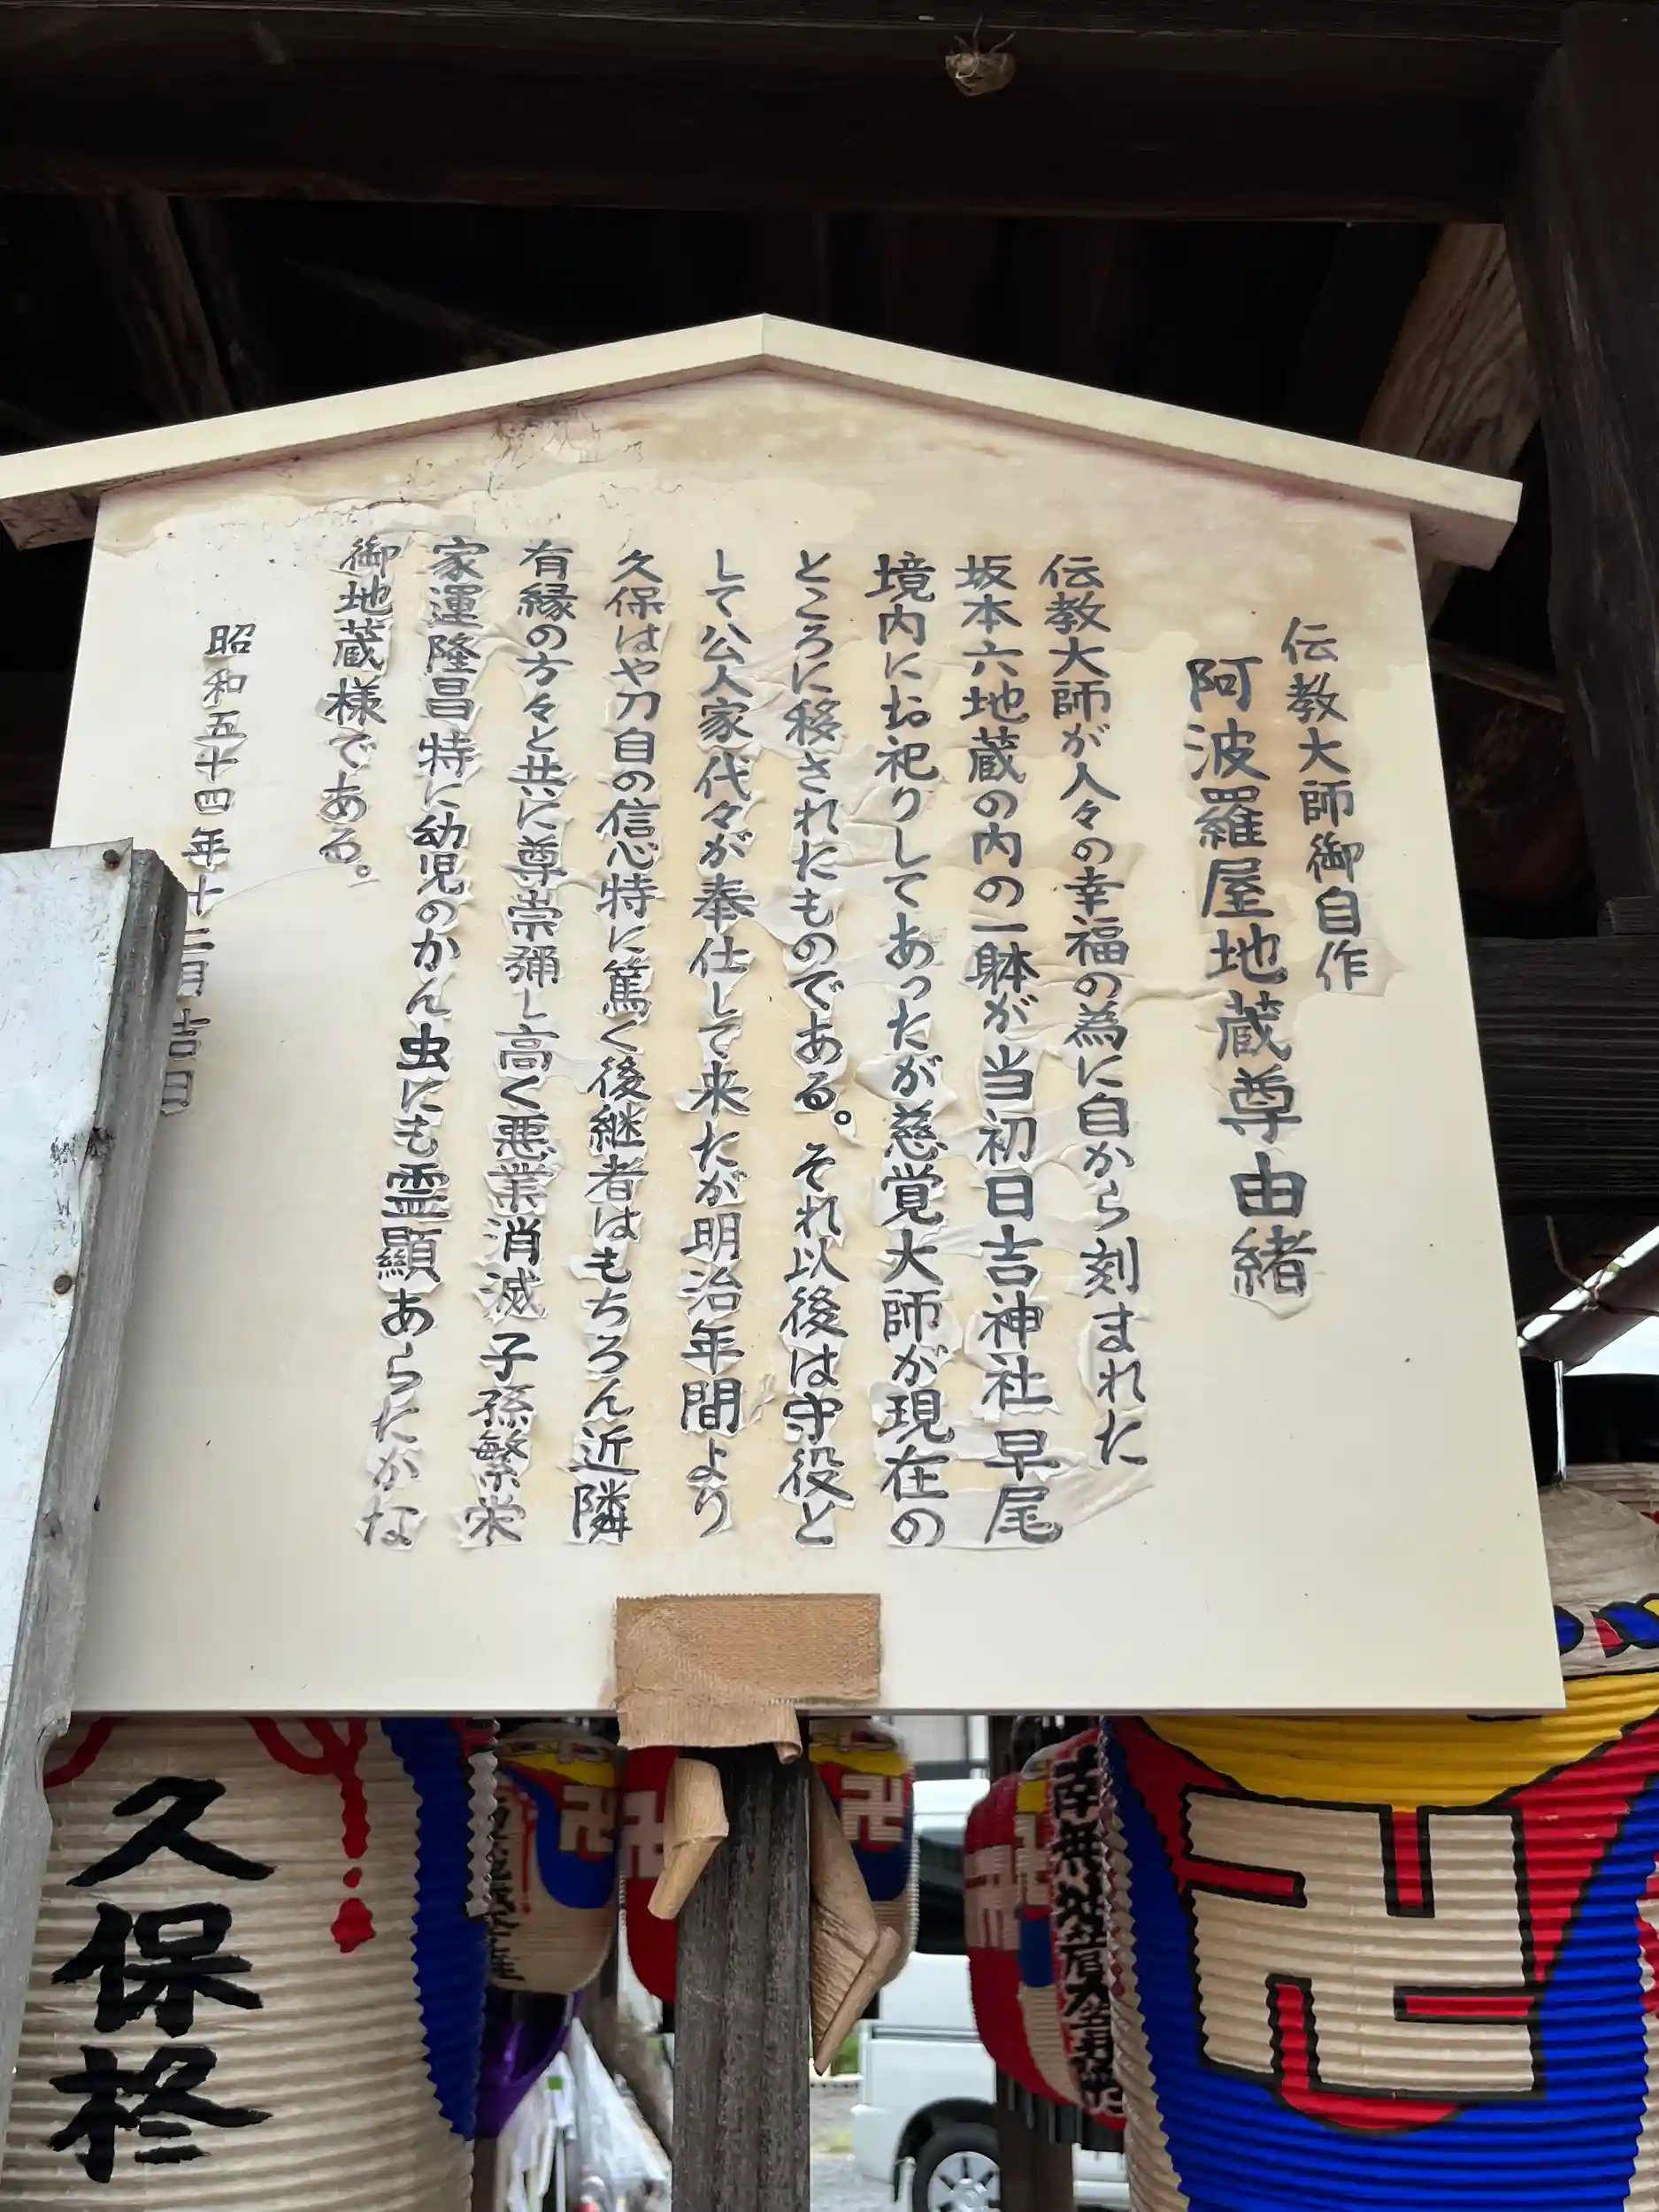 伝教大師御自作
阿波羅屋地蔵尊由緒
伝教大師が人々の幸福の為に自から刻まれた
坂本六地蔵の内の一躰が当初日吉神社早尾
境内にお祀りしてあったが慈覚大師が現在の
ところに移されたものである。それ以後は守役と
して公人家代々が奉仕して来たが明治年間より
久保はや刀自の信心特に篤く後継者はもちろん近隣
有縁の方々と共に尊崇彌し高く悪業消滅子孫繁栄
家運隆昌特に幼児のかん虫にも霊顕あらたかな
御地蔵様である。
昭和五十四年十二月吉日
久保柊
卍
南無地蔵大菩薩